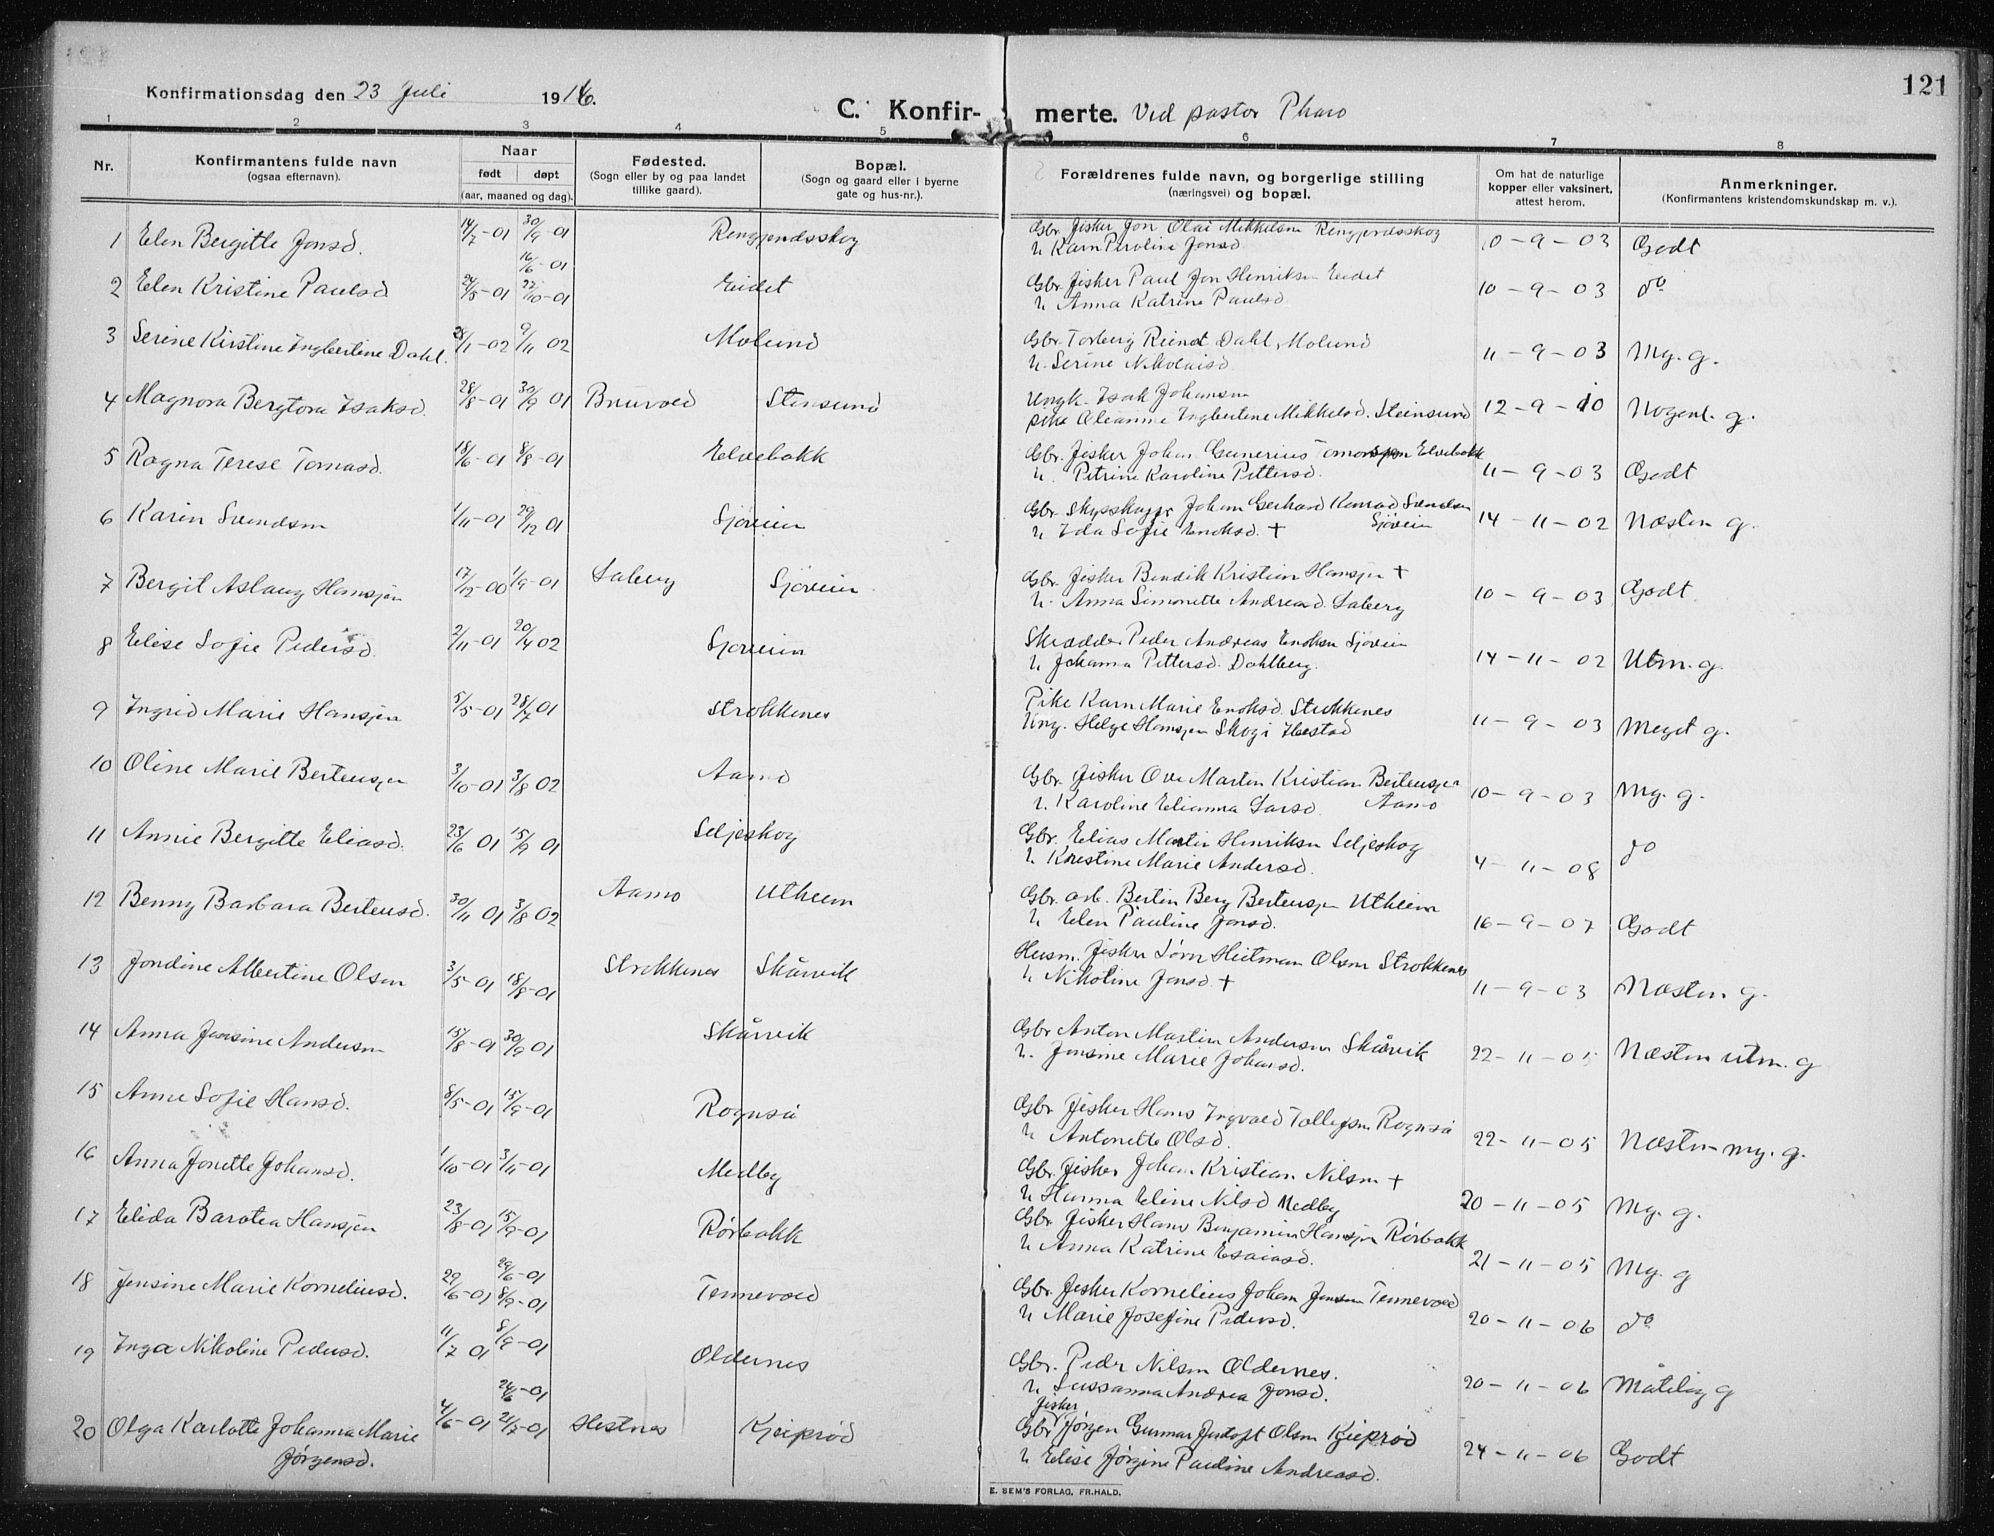 121
Konfirmationsdag den 23 Juli 1916.
C. Konfirmerte. Ved pastor Pharo
1 2 3 4 5 6 7 8
Nr. | Konfirmantens fulde navn (ogsaa efternavn). | Naar født | døpt (aar, maaned og dag). | Fødested. (Sogn eller by og paa landet tillike gaard). | Bopæl. (Sogn og gaard eller i byerne gate og hus-nr.). | Forældrenes fulde navn, og borgerlige stilling (næringsvei) og bopæl. | Om hat de naturlige kopper eller vaksinert, attest herom. | Anmerkninger. (Konfirmantens kristendomskundskap m. v.).
1 Elen Bergitte Jonsd. 14/7-01 30/9-01 Gbr. fisker Jon Olai Mikkelsen
u Karn Peroline Jonsd. 10-9-03 Godt
2 Elen Kristine Paulsd 24/5-01 16/6-01 22/10-01 Eidet Gbr. fisker Paul Jon Henriksen Eidet
u Anna Katrine Paulsd. 10-9-03 do
3 Serine Kirstine Ingbertine Dahl. 28/11-02 9/11 02 Molund Gbr. Torberg Reindt Dahl, Molund
u. Serine Nikolaisd. 11-9-03 Mg. g.
4 Magnora Bergtora Isaksd. 28/8-01 30/9 01 Bruvold Stensund Ungk. Isak Johansen
pike Oleanna Ingbertine Mikkelsd. Steinsund 12-9-10 Nogenl. g.
5 Ragna Terese Tomasd. 18/6-01 8/8-01 Elvebakk Gbr. fisker Johan Gunerius Tomassen Elvebakk
u. Petrine Karoline Pettersd. 11-9-03 Godt
6 Karin Svendsen 1/11-01 29/12 01 Sjøveien Gbr. Skysskaffer Johan Gerhard Konrad Svendsen
u Ida Sofie Enoksd. + Sjøveien 14-11-02 Næsten g.
7 Bergit Aslaug Hansen 17/12-00 1/9-01 Laberg Sjøveien Gbr. fisker Bendik Kristian Hansen +
u. Anna Simonette Andreasd. Laberg 10-9-03 Godt
8 Elise Sofie Pedersd. 2/11-01 20/4 02 Sjøveien Skrædder Peder Andreas Enoksen Sjøveien
u. Johanna Pettersd. Dahlberg. 14-11-02 Utm. g.
9 Ingrid Marie Hansen 5/5-01 28/7 01 Strokkenes Pike Karn Marie Enoksd. Strokkenes
Ung. Helge Hansen Skog i Ibestad 11-9-03 Meget g.
10 Oline Marie Bertensen 3/10-01 3/8 02 Aamo Gbr. fisker Ove Marten Kristian Bertensen
u. Karoline Elianna Larsd. Aamo 10-9-03 Mg. g.
11 Annie Bergitte Eliasd. 23/6 01 15/9 01 Seljeskog Gbr. Elias Martin Henriksen Seljeskog
u. Kristine Marie Andersd. 4-11-08 do
12 Benny Barbara Bertensd. 30/11 01 3/8 02 Aamo Utheim Gbr. arb. Bertin Berg Bertensen Utheim
u Elen Pauline Jonsd. 16-9-07 Godt
13 Jondine Albertine Olsen 3/5-01 18/8-01 Strokkenes Skårvik Husm. fisker Heitman Olsen Strokkenes
u Nikoline Jonsd. + 11-9-03 Næsten g.
14 Anna Jensine Andersen 15/8-01 30/9 01 Skårvik Gbr Anton Martin Andersen Skårvik
u. Jensine Marie Johansd. 22-11-05 Næsten utm. g
15 Anne Sofie Hansd. 8/5-01 15/9-01 Rognså Gbr fisker Hans Ingvald Tollefsen Rognså
u Antonette Olsd. 22-11-05 Næsten mg. g.
16 Anna Jonette Johansd. 1/10-01 3/11-01 Medby Gbr. fisker Johan Kristian Nilsen +
u Hanna Eline Nilsd Medby 20-11-05 Mg. g.
17 Elida Barotea Hansen 23/8-01 15/9-01 Rørbakk Gbr. fisker Hans Benjamin Hansen Rørbakk
u Anna Katrine Esaiasd. 21-11-05 Mg. g
18 Jensine Marie Korneliusd. 29/6-01 29/6-01 8/9-01 Tennevold Gbr. fisker Kornelius Johan Jensen Tennevold
u Marie Josefine Pedersd. 20-11-06 do
19 Inga Nikoline Pedersd. 11/7 01 8/9-01 Oldernes Gbr. Peder Nilsen Oldernes.
u Sussanna Andrea Jonsd. 20-11-06 Måtelig g
20 Olga Karlotte Johanna Marie Jørgensd. 4/6-01 24/6-01 21/7-01 Hestnes Kjeiprød Gbr fisker Jørgen Gunnar Olsen Kjeiprød
u Elise Jørgine Pauline Andreasd. 24-11-06 Godt
E. SEM'S FORLAG, FR.HALD.